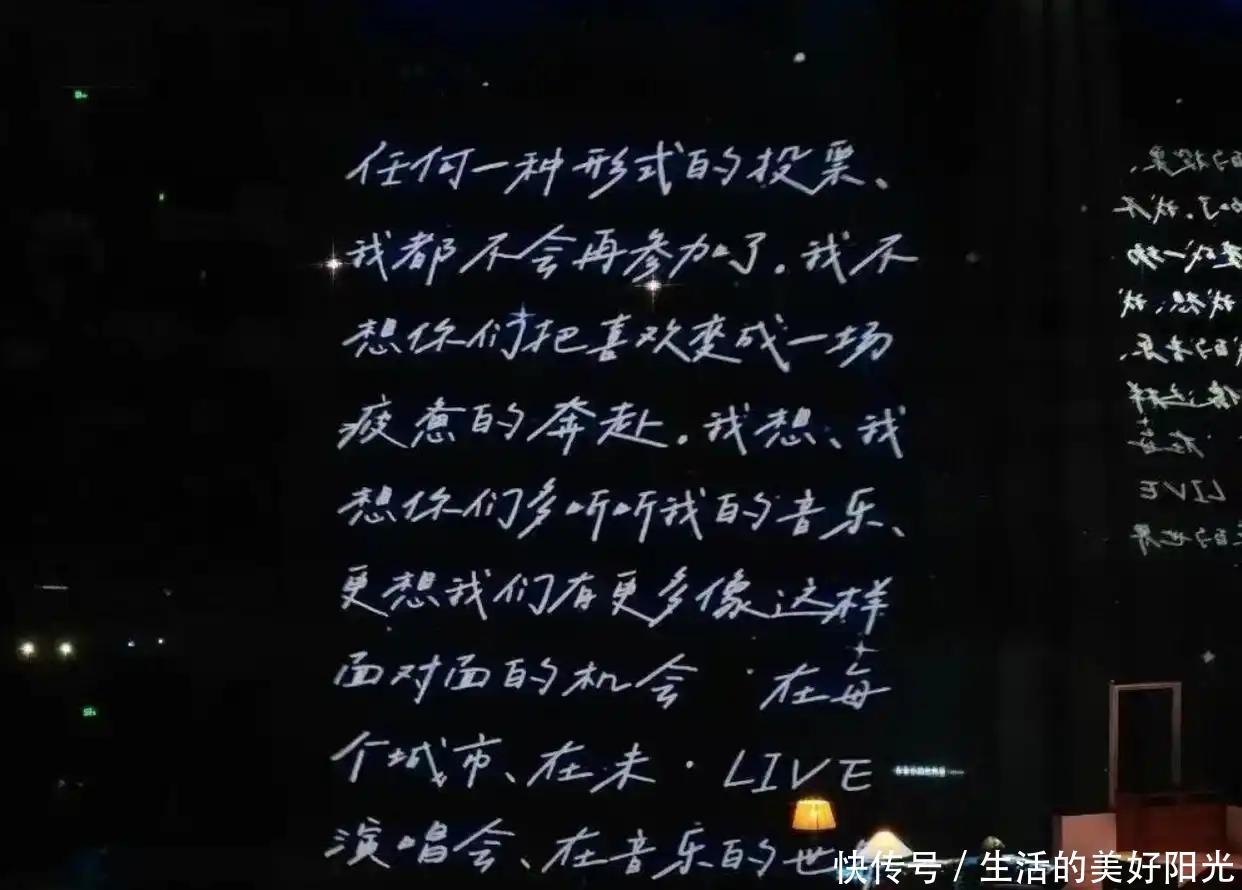 任何一种形式的投票、
我都不会再参加了。我不
想你们把喜欢变成一场
疲惫的奔赴。我想、我
想你们多听听我的音乐、
更想我们有更多像这样
面对面的机会 · 在每
个城市、在未 · LIVE
演唱会、在音乐的世
快传号 / 生活的美好阳光